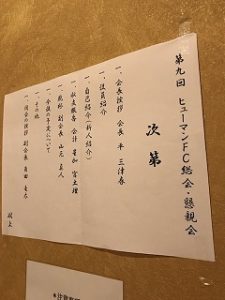 第九回 ヒューマンFC総会・懇親会
次第
一、会長挨拶 会長 平 三津春
一、役員紹介
一、自己紹介(新人紹介)
一、収支報告 会計
一、乾杯 副会長 山元 直人
一、今後の予定について
一、その他
一、閉会の挨拶 副会長 角田
以上
*注意事